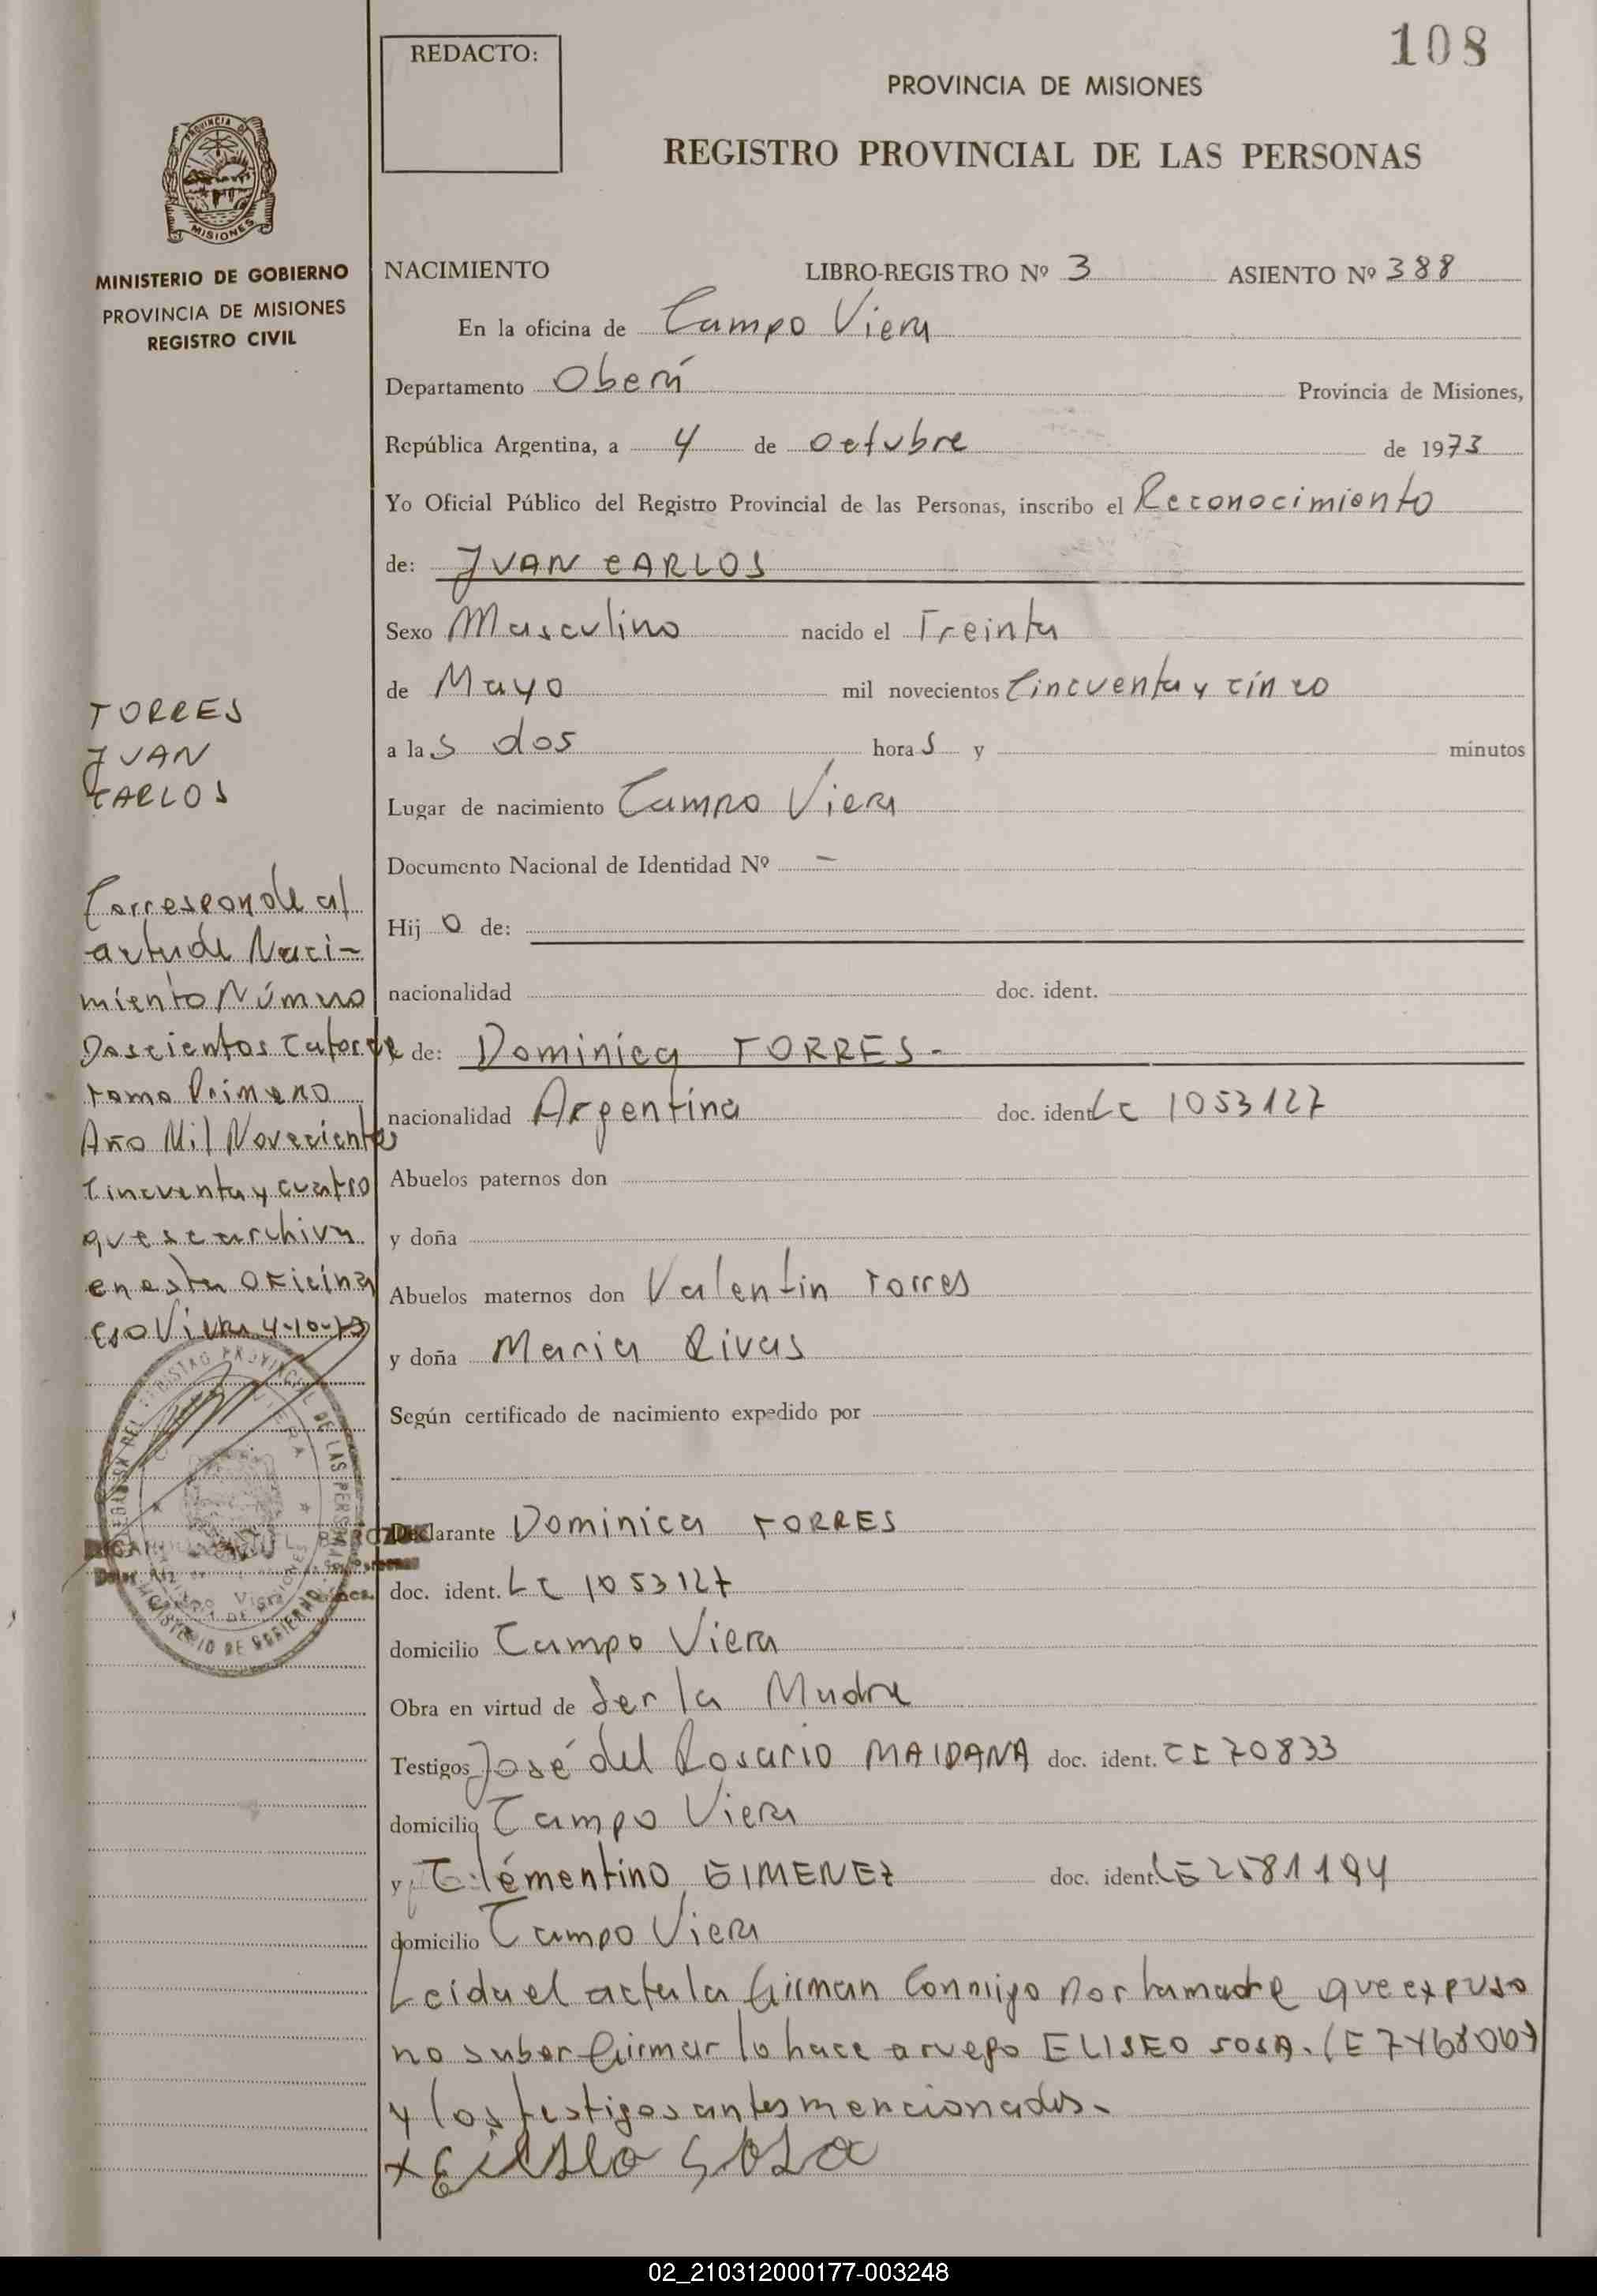 108
REDACTO:
PROVINCIA DE MISIONES
REGISTRO PROVINCIAL DE LAS PERSONAS
MISIONES
MINISTERIO DE GOBIERNO
PROVINCIA DE MISIONES
REGISTRO CIVIL
TORRES
JUAN
CARLOS
Corresponde al
acta de Naci-
miento Número
Doscientos Catorce
tomo Primero
Año Mil Novecientos
Cincuenta y cuatro
que se archiva
en esta Oficina
Cpo Viera 4-10-73
NACIMIENTO LIBRO-REGISTRO Nº 3 ASIENTO Nº 388
En la oficina de Campo Viera
Departamento Oberá Provincia de Misiones,
República Argentina, a 4 de octubre de 1973
Yo Oficial Público del Registro Provincial de las Personas, inscribo el Reconocimiento
de: JUAN CARLOS
Sexo Masculino nacido el Treinta
de Mayo mil novecientos Cincuenta y cinco
a las dos horas y minutos
Lugar de nacimiento Campo Viera
Documento Nacional de Identidad Nº -
Hijo de:
nacionalidad doc. ident.
y de: Dominica TORRES-
nacionalidad Argentina doc. ident LC 1053127
Abuelos paternos don
y doña
Abuelos maternos don Valentin Torres
y doña Maria Rivas
Según certificado de nacimiento expedido por
Declarante Dominica TORRES
doc. ident. LC 1053127
domicilio Campo Viera
Obra en virtud de Ser la Madre
Testigos José del Rosario MAIDANA doc. ident. CI 70833
domicilio Campo Viera
y Clémentino GIMENEZ doc. ident. LE 2581194
domicilio Campo Viera
Leida el acta la firman Conmigo por la madre que expuso
no saber firmar lo hace a ruego ELISEO SOSA. LE
y los testigos antes mencionados.-
x Eliseo Sosa
02_210312000177-003248